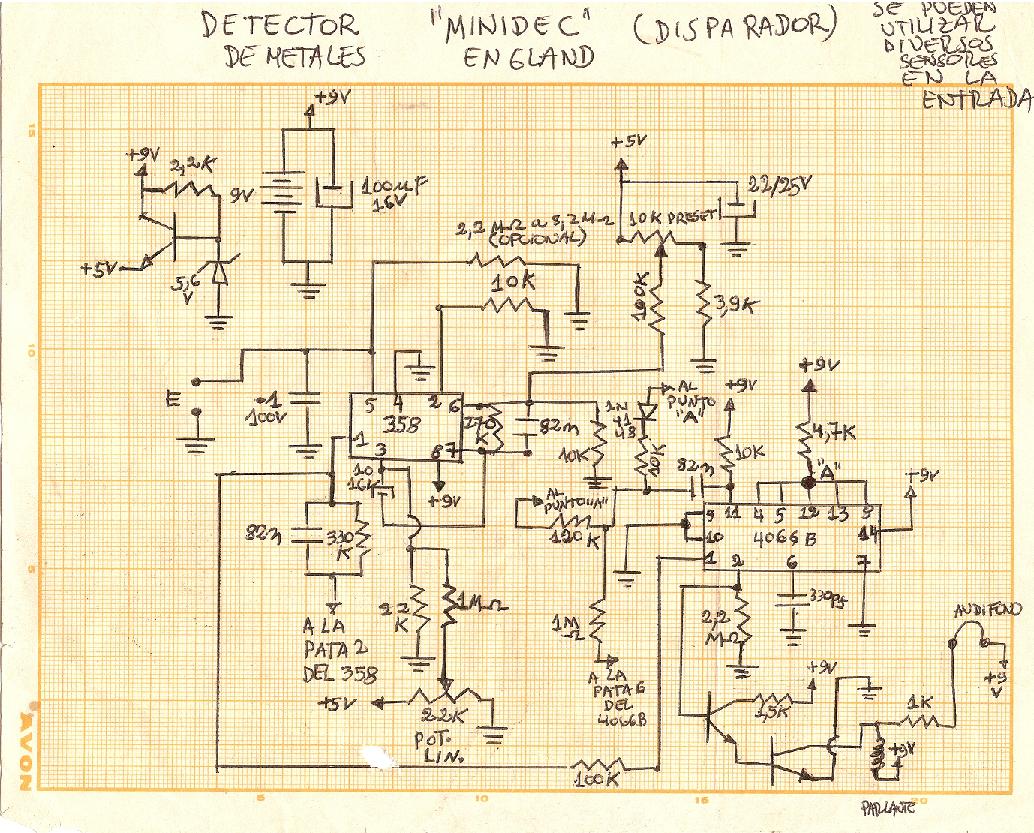 DETECTOR "MINIDEC" (DISPARADOR)
DE METALES ENGLAND
SE PUEDEN
UTILIZAR
DIVERSOS
SENSORES
EN LA
ENTRADA
15
+9V
+9V
2,2K
9V
100µF
16V
+5V
5,6
V
2,2 MΩ a 8,2MΩ
(OPCIONAL)
10K
+5V
22/25V
10K PRESET
100K
3,9K
10
E
.1
100V
5 4 2 6
358
1
3 8 7
270
K
82n
+9V
10
16V
10K
1N
41
48
AL
PUNTO
"A"
10K
+9V
10K
82n
+9V
4,7K
"A"
9 11 4 5 12 13 3
10
4066B
14
1
2 6 7
+9V
AL
PUNTO "A"
120
K
82n
330
K
A LA
PATA 2
DEL 358
22
K
1MΩ
+5V
22K
POT.
LIN.
5
1M
Ω
A LA
PATA 6
DEL
4066B
2,2
MΩ
330pf
AUDIFONO
+9
V
+9V
1,5K
1K
+9V
100K
AVON
5 10 15 20
PARLANTE